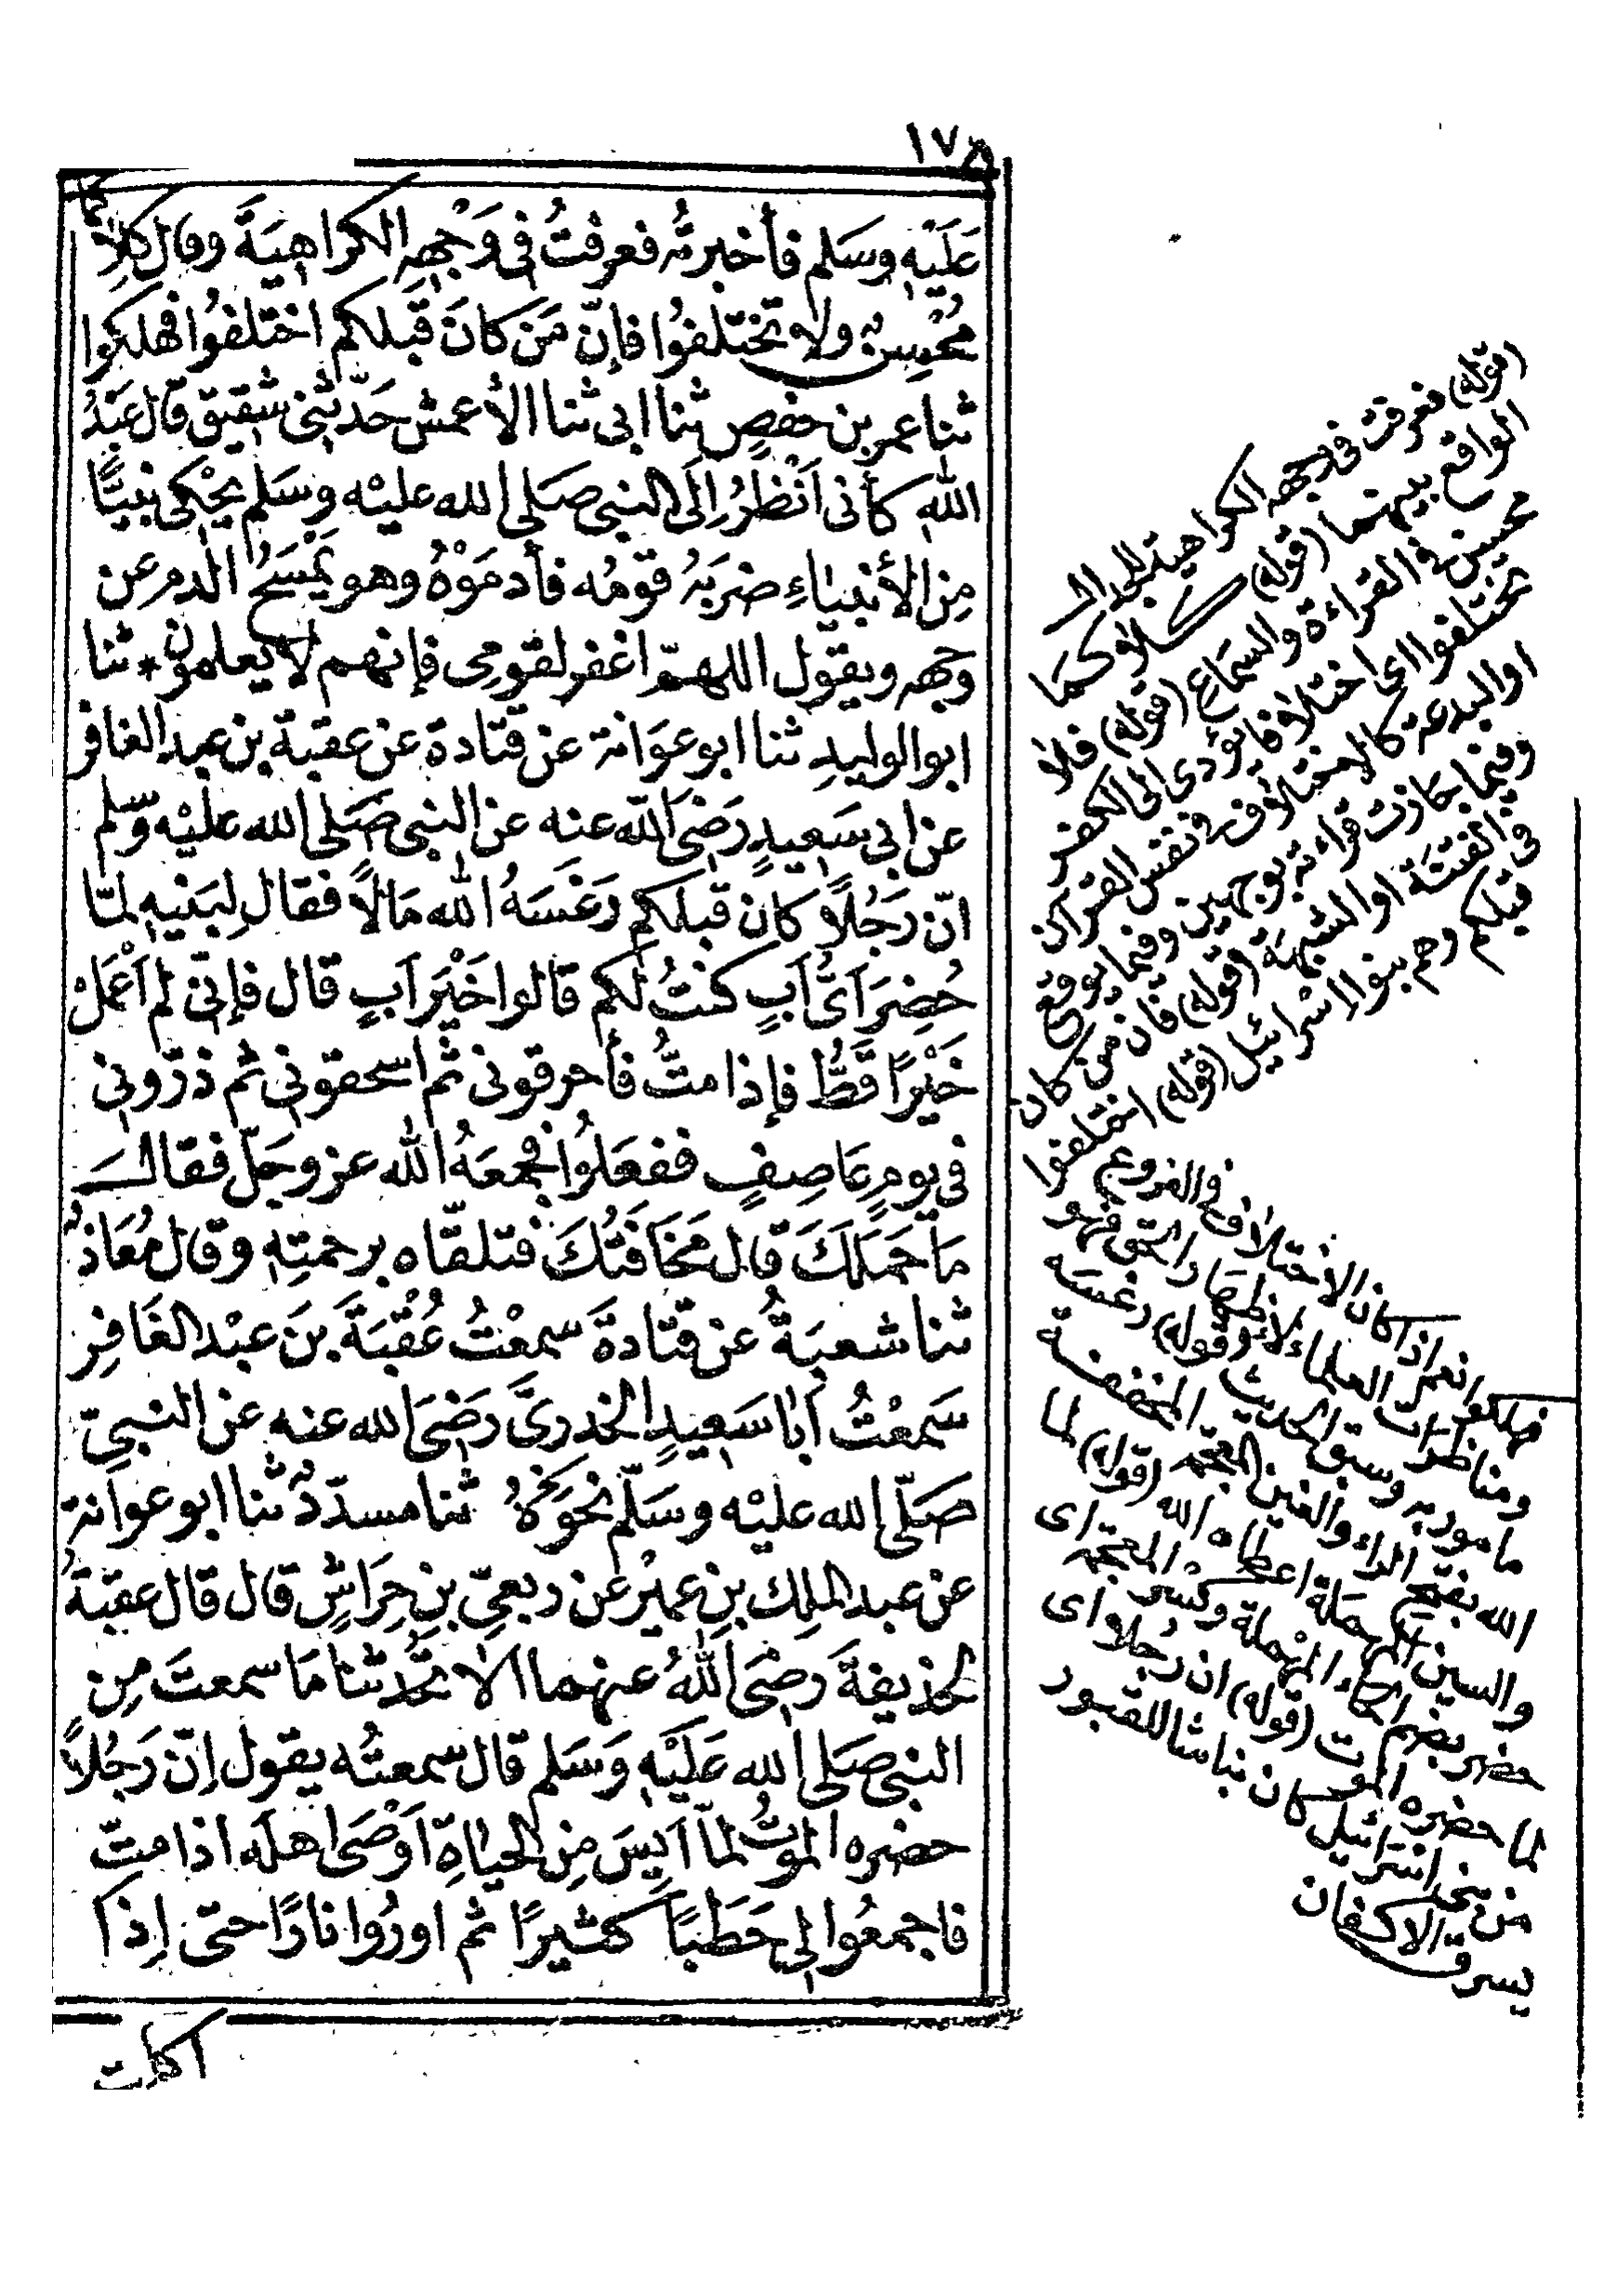 ١٧٥
عَلَيْهِ وسَلم فأخبرتُه فعرفتُ فى وَجْهِهِ الكراهيَةَ وقال كلاكما
مُحْسِن ولا تختلفُوا فإنّ مَن كانَ قَبلكم اختلفُوا فهلكوا
ثنا عمر بن حفصٍ ثنا ابى ثنا الأعمش حَدّثنى شقيق قال عَبْدُ
اللهِ كأنى اَنْظرُ اِلَى النبى صَلى الله عليْه وسَلم يحْكى نبيًّا
مِن الأنبياءِ ضربَهُ قومُه فأدمَوْهُ وهو يَمْسَحُ الدم عن
وجهه ويقول اللهمّ اغفر لقومِى فإنهم لا يعلمون * ثنا
ابو الوليدِ ثنا ابو عوَانة عن قتادة عن عقبة بن عبد الغافر
عن ابى سَعِيدٍ رَضىَ اللّه عنه عن النبى صَلى الله عليْه وسَلم
انّ رَجُلاً كان قبلكم رَغَسَهُ الله مَالاً فقال لِبَنيهِ لمّا
حُضِرَ اَىُّ اَبٍ كنتُ لكم قالوا خَيْرَ اَبٍ قال فإنى لم اَعْمَلْ
خَيْرًا قَطُّ فإذا متُّ فأحرقونى ثم اسحقونى ثم ذرّونى
فى يومٍ عَاصِفٍ ففعَلُوا فجمعَهُ الله عز وجَلّ فقال
مَا حَمَلَكَ قال مَخَافَتُكَ فتلقّاه برحمتِهِ وقال مُعَاذ
ثنا شعبَةُ عن قتادةَ سمعْتُ عُقْبَةَ بنَ عبْد الغَافِر
سَمعْتُ اَبا سَعِيدٍ الخدرىَّ رَضىَ الله عنه عن النبىِّ
صَلّى الله عليْه وسَلّم نحوَهُ ثنا مسدّدٌ ثنا ابو عوانة
عن عبد الملِك بنِ عميْر عن ربعىّ بنِ حِرَاشٍ قال قال عقبَةُ
لحذيفةَ رَضىَ اللهُ عنهما الا تحَدِّثنا مَا سمعتَ مِن
النبى صَلى الله عَلَيْهِ وَسَلم قال سمعتُه يقول اِنّ رَجُلاً
حضره الموتُ لمّا اَيِسَ مِن الحيَاةِ اَوْصَى اهلَه اذا متّ
فاجمعُوا لى حَطبًا كثيرًا ثم اورُوا نارًا حتى اِذا
اكلت
(قوله) فعرفت فى وجهه الكراهية
الواقع بينهما (قوله) كلاكما
محسن فى القراءة والسماع (قوله) فلا
تختلفوا اى اختلافا يؤدى الى الكفر
او البدعة كالاختلاف فى نفس القرآن
وفيما جازت قراءته بوجهين وفيما يوقع
فى الفتنة او الشبهة (قوله) فان من كان
قبلكم وهم بنوا اسرائيل (قوله) اختلفوا
فهلكوا نعم اذا كان الاختلاف فى الفروع
ومناظرات العلماء لاظهار الحق فهو
مامور به وسبق الحديث (قوله) رغسه
الله بفتح الراء والغين المعجمة المخففة
والسين المهملة اعطاه الله (قوله) لما
حضر بضم الحاء المهملة وكسر المعجمة اى
لما حضره الموت (قوله) ان رجلا اى
من بنى اسرائيل كان نباشا للقبور
يسرق الاكفان